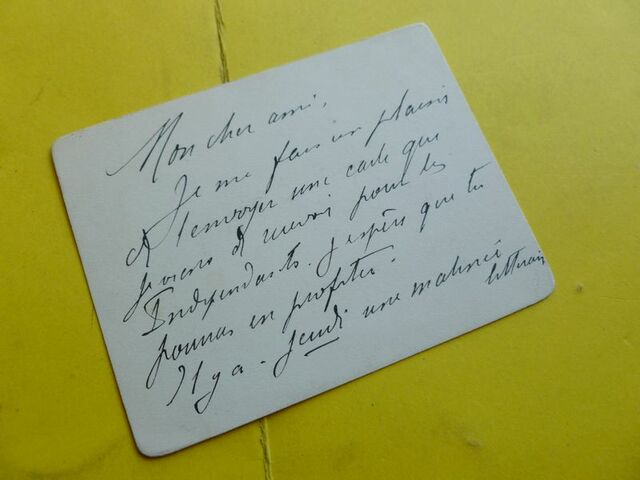 Mon cher ami,
Je me fais un plaisir
d t'envoyer une carte que
je viens d recevoir pour les
Indépendants. J'espère que tu
pourras en profiter.
Il y a - jeudi une matinée
littéraire